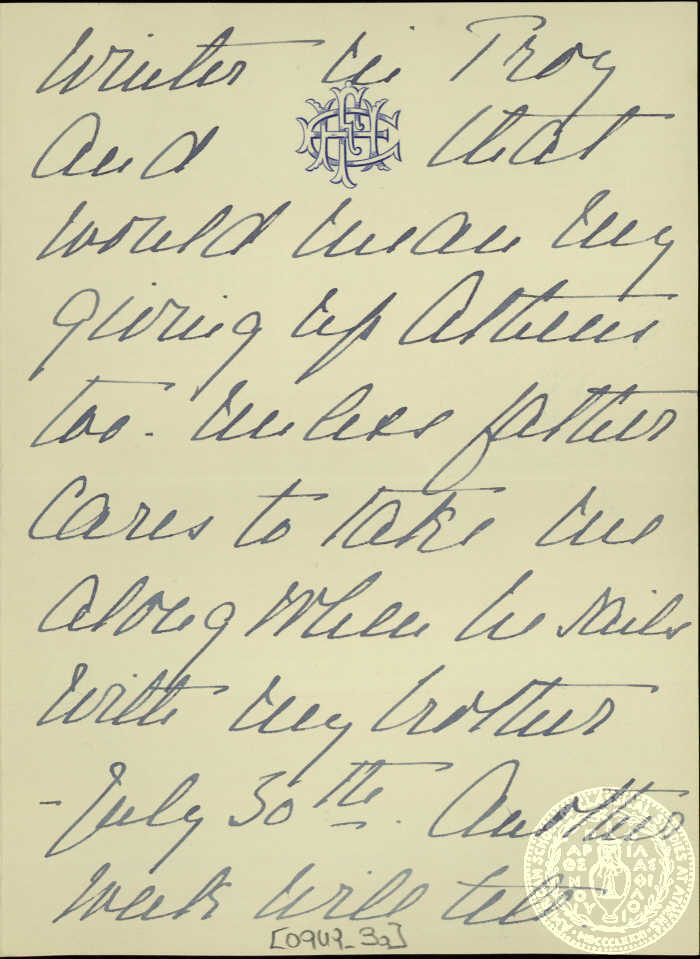 Winter in Troy
and that
would mean my
giving up Athens
too. Unless father
cares to take me
along when he sails
with my brother
- July 30th. Another
week will tell.
[0949_3a]